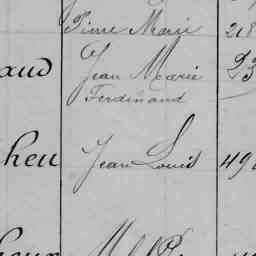 Pierre Marie 218
aud Jean Marie
Ferdinand
heu Jean Louis 49